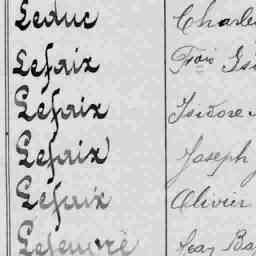 Leduc Charle
Lefaix Frois Isi
Lefaix Isidore
Lefaix Joseph
Lefaix Olivier
Lefeuvre Jean Ba